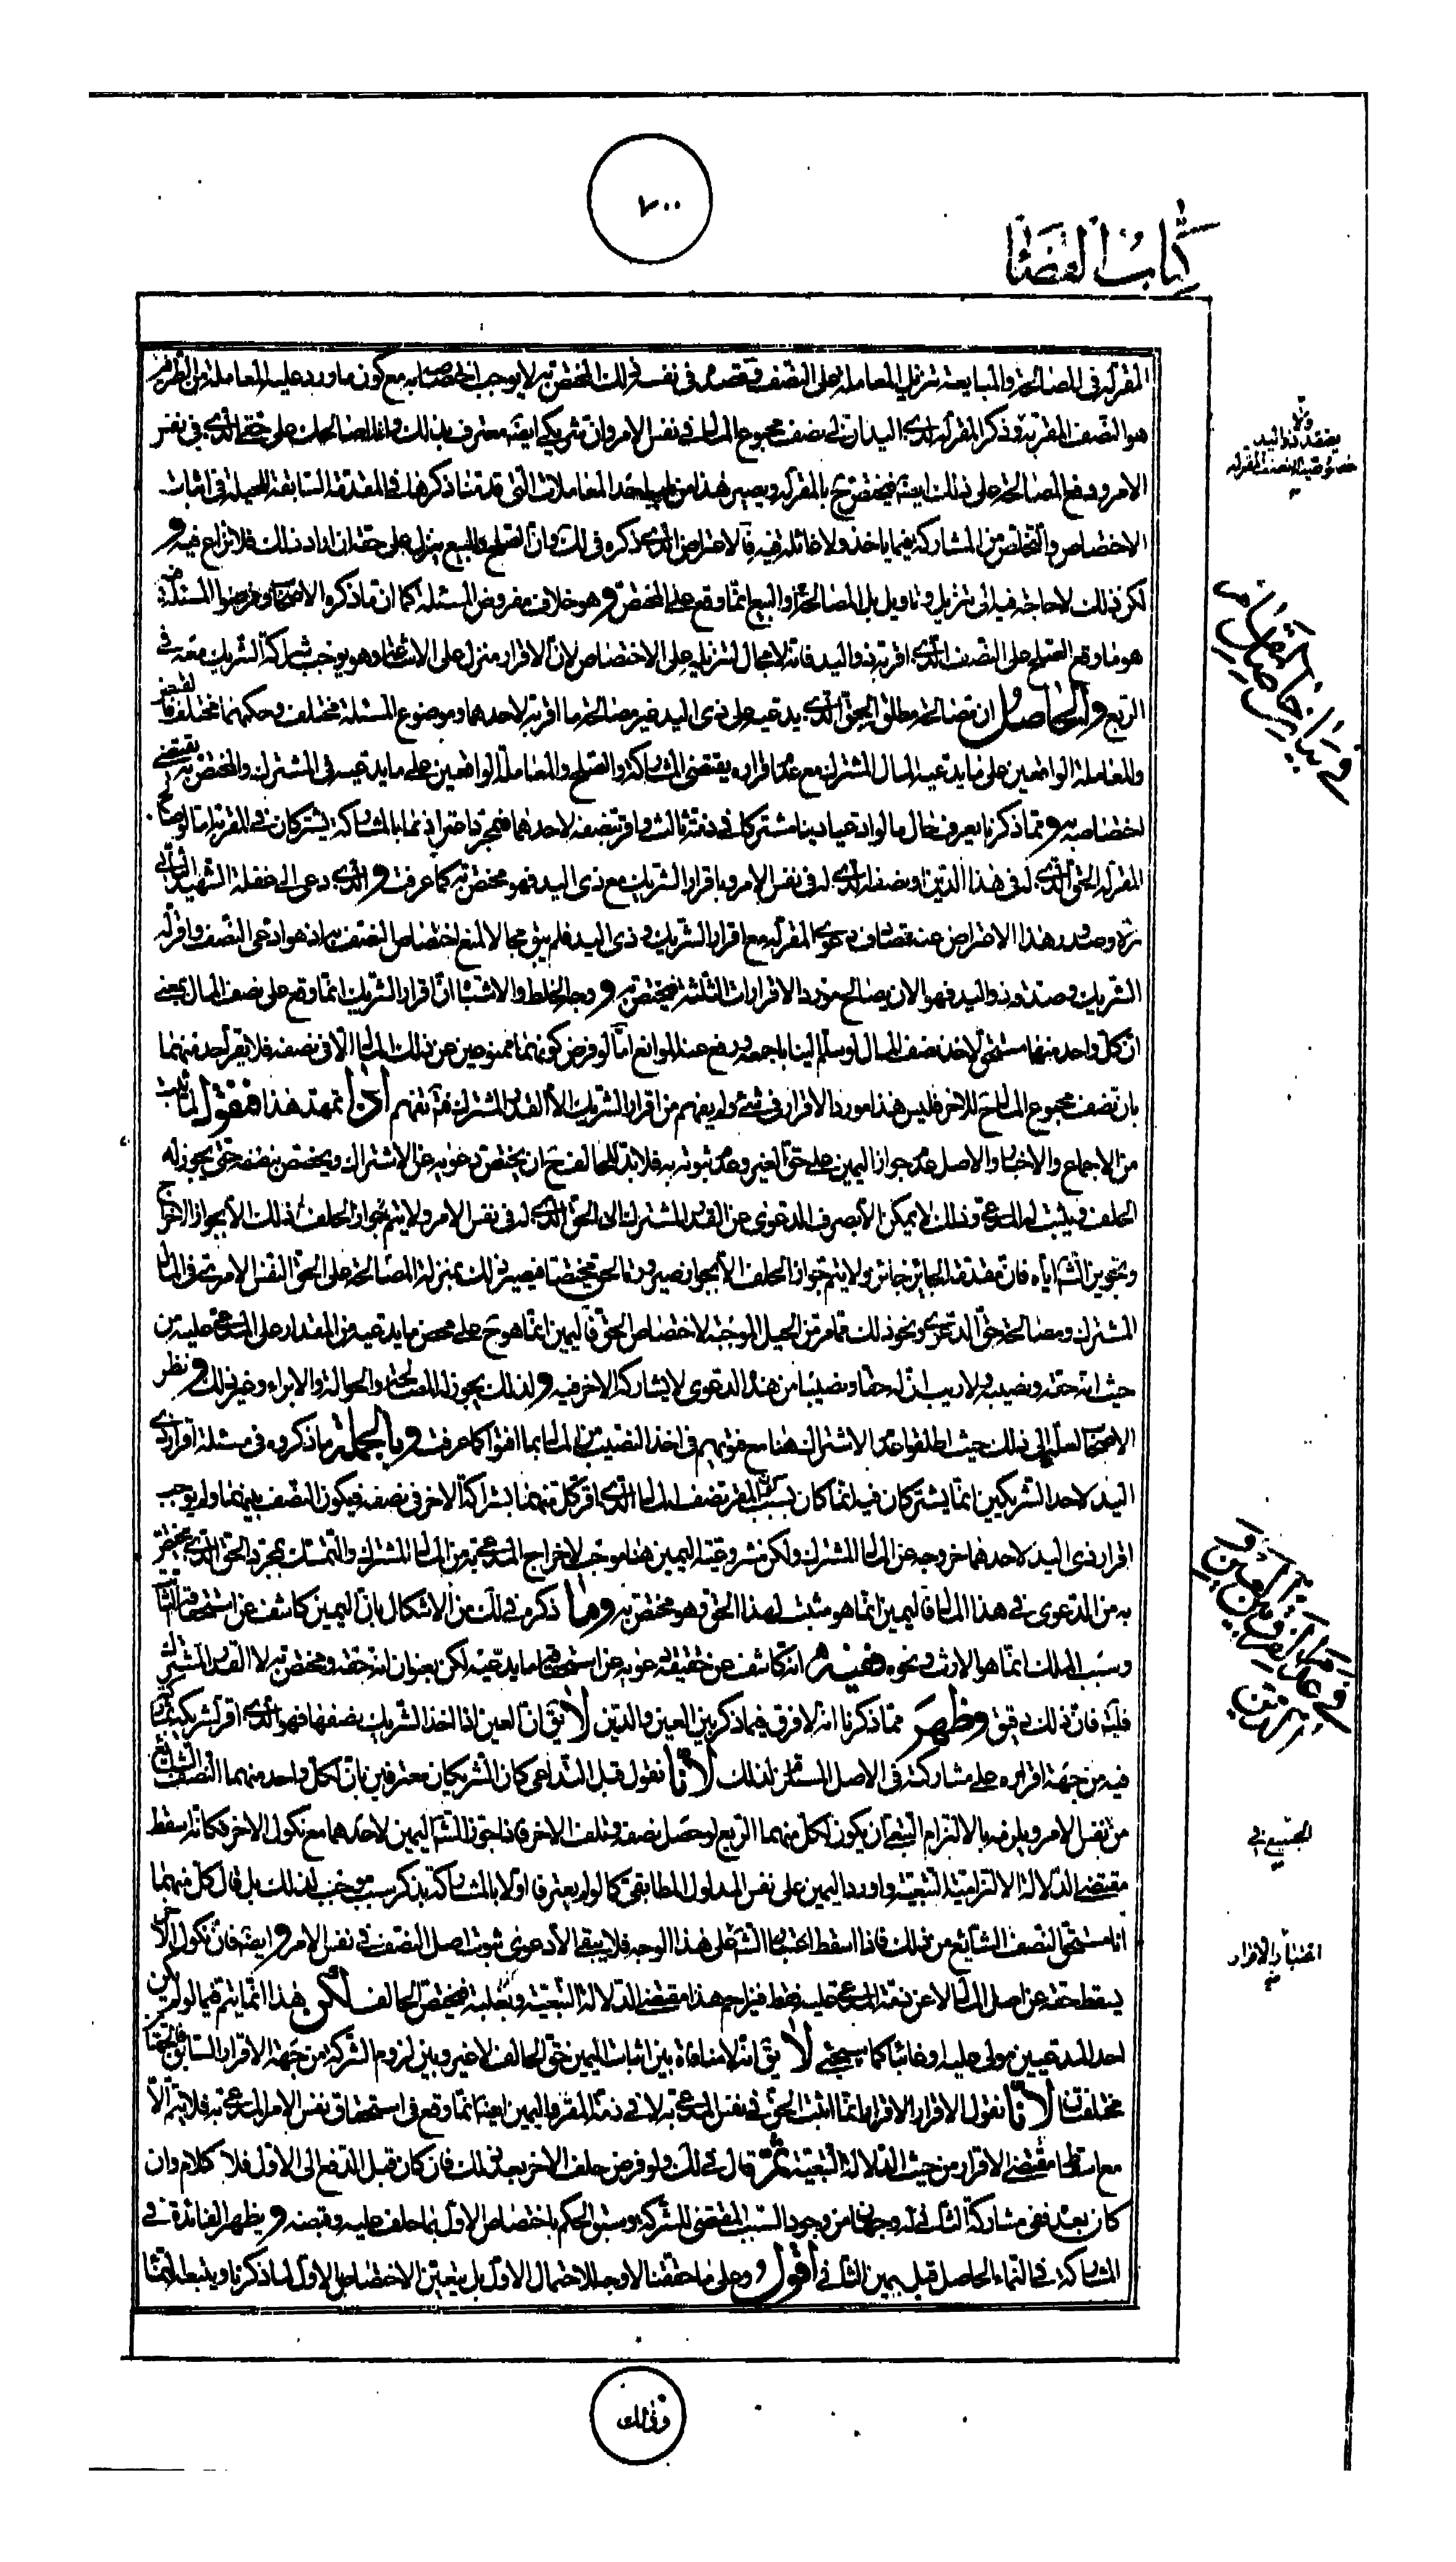 ٧٠٠
كتاب القضاء
المقر له في المصالحة والمبايعة تنزيل المعاملة على النصف وقصده في نفسه ذلك المختص به لا يوجب اختصاصه به مع كون ما ورد عليه المعاملة من الطرفين
هو النصف المقر به وذكر المقر له لذي اليد ان لي نصف مجموع المال في نفس الامر وان شريكي ايضا معترف بذلك واصالحك على حقي الذي في نفس
الامر ودفع المصالحة على ذلك ايضا فيختص ح بالمقر له ويصير هذا من احد المعاملات التي قدمنا ذكرها في المقدمة السابقة للحيلة في اثبات
الاختصاص والتخلص من المشاركة فيما ياخذه ولا غائلة فيه فالاعتراض الذي ذكره في لك وان الصلح والبيع ينزل على حقه ان اراد ذلك فلا نزاع فيه و
لكن ذلك لا حاجة فيه الى تنزيل وتاويل بل المصالحة والبيع انما وقع على المختص وهو خلاف مفروض المسئلة كما ان ما ذكره الاصحاب وفرضوا المسئلة فيه
هو ما وقع الصلح على النصف الذي اقر به ذو اليد فانه لا مجال لتنزيله على الاختصاص لان الاقرار منزل على الاشاعة وهو يوجب شراكة الشريك معه في
الربع والحاصل ان مصالحة مطلق الحق الذي يدعيه على ذي اليد غير مصالحة ما اقر به لاحدهما وموضوع المسئلة مختلف وحكمهما مختلف فالصلح
والمعاملة الواقعين على ما يدعيه المال المشترك مع عدم اقراره يقتضي المشاركة والصلح والمعاملة الواقعين على ما يدعيه في المشترك والمختص به يقتضي
اختصاصه به ومما ذكرنا يعرف حال ما لو ادعيا دينا مشتركا في ذمة ثالث واقر بنصفه لاحدهما فبمجرد اعترافهما بالمشاركة يشتركان في المقر به اما لو صالح
المقر له الحق الذي له في هذا الدين او نصفه الذي له في نفس الامر وباقرار الشريك مع ذي اليد فهو مختص به كما عرفت والذي دعى الى غفلة الشهيد الثاني
ره وصدور هذا الاعتراض عنه تصادف دعوى المقر له مع اقرار الشريك وذي اليد فلم يبق مجالا لمنع اختصاص النصف به اذ هو ادعى النصف واقر له
الشريك وصدقه ذو اليد فهو الان يصالح مورد الاقرارات الثلث فيختص به ووجه الخلط والاشتباه ان اقرار الشريك انما وقع على نصف المال بمعنى
ان كل واحد منهما مستحق لاخذ نصف المال لو سلم الينا باجمعه ورفع عنه الموانع اما لو فرض كونهما ممنوعين عن ذلك المال الا في نصفه فلا يقر احد منهما
بان نصف مجموع المال ح للاخر فليس هذا مورد الاقرار في شئ ولم يفهم من اقرار الشريك الا القدر المشترك فتفهم اذا تمهد هذا فنقول لما ثبت
من الاجماع والاخبار والاصل عدم جواز اليمين على حق الغير وعدم ثبوته به فلا بد للحالف ح ان يختص دعواه عن الاشتراك ويختص بنصفه حتى يجوز له
الحلف ويثبت له المدعى وذلك لا يمكن الا بصرف الدعوى عن القدر المشترك الى الحق الذي له في نفس الامر ولا يتم جواز الحلف كذلك الا بجواز الاخراج
وتجويز الشارع اياه فان مقدمة الجائز جائز ولا يتم جواز الحلف الا بجواز صيرورة الحق مختصا فيصير ذلك بمنزلة المصالحة على الحق النفس الامري في المال
المشترك ومصالحة حق الدعوى ونحو ذلك مما مر من الحيل الموجبة لاختصاص الحق فاليمين انما هو ح على محض ما يدعيه من المقدار على المدعى عليه من
حيث انه حقه ونصيبه ولا ريب ان له حقا ونصيبا من هذه الدعوى لا يشاركه الاخر فيه ولذلك يجوز له المصالحة والحوالة والابراء وغير ذلك ونظر
الاصحاب لعله الى ذلك حيث اطلقوا عدم الاشتراك هنا مع فتويهم في اخذ النصيب في المال بما افتوا كما عرفت وبالجملة ما ذكروه في مسئلة اقرار ذي
اليد لاحد الشريكين انما يشتركان فيه لما كان بسبب كون المقر به نصف المال الذي اقر كل منهما بشراكة الاخر في نصفه فيكون النصف بينهما ولم يوجب
اقرار ذي اليد لاحدهما خروجه عن المال المشترك ولكن مشروعية اليمين هنا موجب لاخراج المدعى به من المال المشترك والتمسك بمجرد الحق الذي يختص
به من الدعوى في هذا المال فاليمين انما هو مثبت لهذا الحق وهو مختص به وما ذكره في لك من الاشكال بان اليمين كاشف عن استحقاقه السابق
وسبب الملك انما هو الارث ونحوه ففيه انه كاشف عن حقيقة دعواه عن استحقاق ما يدعيه لكن بعنوان انه حقه ومختص به لا القدر المشترك
فليتأمل فان ذلك دقيق وظهر مما ذكرنا انه لا فرق فيما ذكر بين العين والدين لا يق ان العين اذا اخذ الشريك بنصفها فهو الذي اقر لشريكه
فيه من جهة اقراره على مشاركته في الاصل المستلزم لذلك لأنا نقول قبل التداعي كان الشريكان معترفين بان لكل واحد منهما النصف الشايع
من نفس الامر ويلزمه بالالتزام التبعي ان يكون لكل منهما الربع لو حصل نصفه وتلف الاخر فاذا جوز الشارع اليمين لاحدهما مع نكول الاخر فكانه اسقط
مقتضى الدلالة الالتزامية التبعية واورد اليمين على نفس المدلول المطابقي كما لو لم يعترفا اولا بالمشاركة بذكر سبب موجب لذلك بل قال كل منهما
انا مستحق النصف الشايع من ذلك فاذا اسقط اعتبار الشارع على هذا الوجه فلا يبقى الا دعوى ثبوت اصل النصف في نفس الامر وايضا فان نكول الاخر
يسقط حقه عن اصل المال لا عن ذمة المدعى عليه فقط فيزاحم هذا مقتضى الدلالة التبعية ويغلبه فيختص الحالف لكن هذا انما يتم فيما لو لم يكن
احد المدعيين مولى عليه او غائبا كما سيجئ لا يق انه لا منافاة بين اثبات اليمين حق الحالف لا غير وبين لزوم الشركة من جهة الاقرار السابق
مختلفتان لأنا نقول الاقرار انما اثبت الحق في نفس المدعى به لا في ذمة المقر واليمين ايضا انما وقع في استحقاق نفس الامر المدعى به فلا يتم الا
مع اسقاط مقتضى الاقرار من حيث الدلالة التبعية ثم قال في لك ولو فرض حلف الاخر بعد ذلك فان كان قبل الدفع الى الاول فلا كلام وان
كان بعده ففي مشاركة الثاني له وجهان من وجود السبب المقتضي للشركة وسبق الحكم باختصاص الاول بما حلف عليه وقبضه ويظهر الفائدة في
المشاركة في النماء الحاصل قبل يمين الثاني اقول وعلى ما حققنا لا وجه للاحتمال الاول بل يتعين الاختصاص بالاول لما ذكرنا ويتبعه النماء
وفي لك